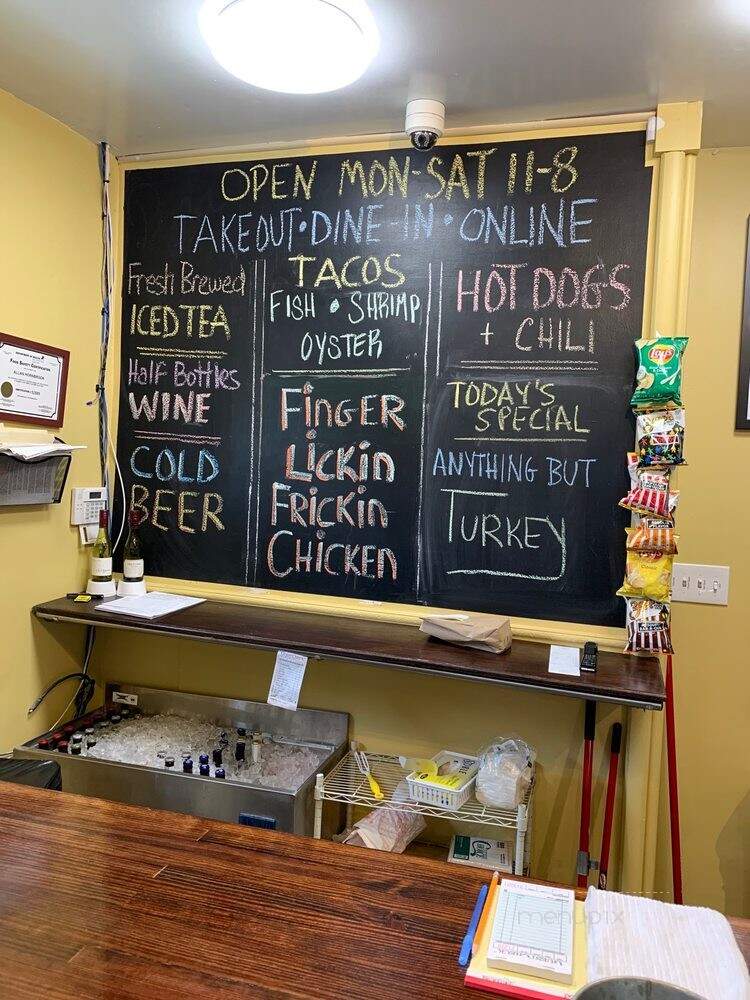 OPEN MON-SAT 11-8
TAKEOUT•DINE-IN•ONLINE
Fresh Brewed
ICED TEA
Half Bottles
WINE
COLD
BEER
TACOS
FISH • SHRIMP
OYSTER
FINGER
LICKIN
FRICKIN
CHICKEN
HOT DOG'S
+ CHILI
TODAY'S
SPECIAL
ANYTHING BUT
TURKEY
Lay's
menupix